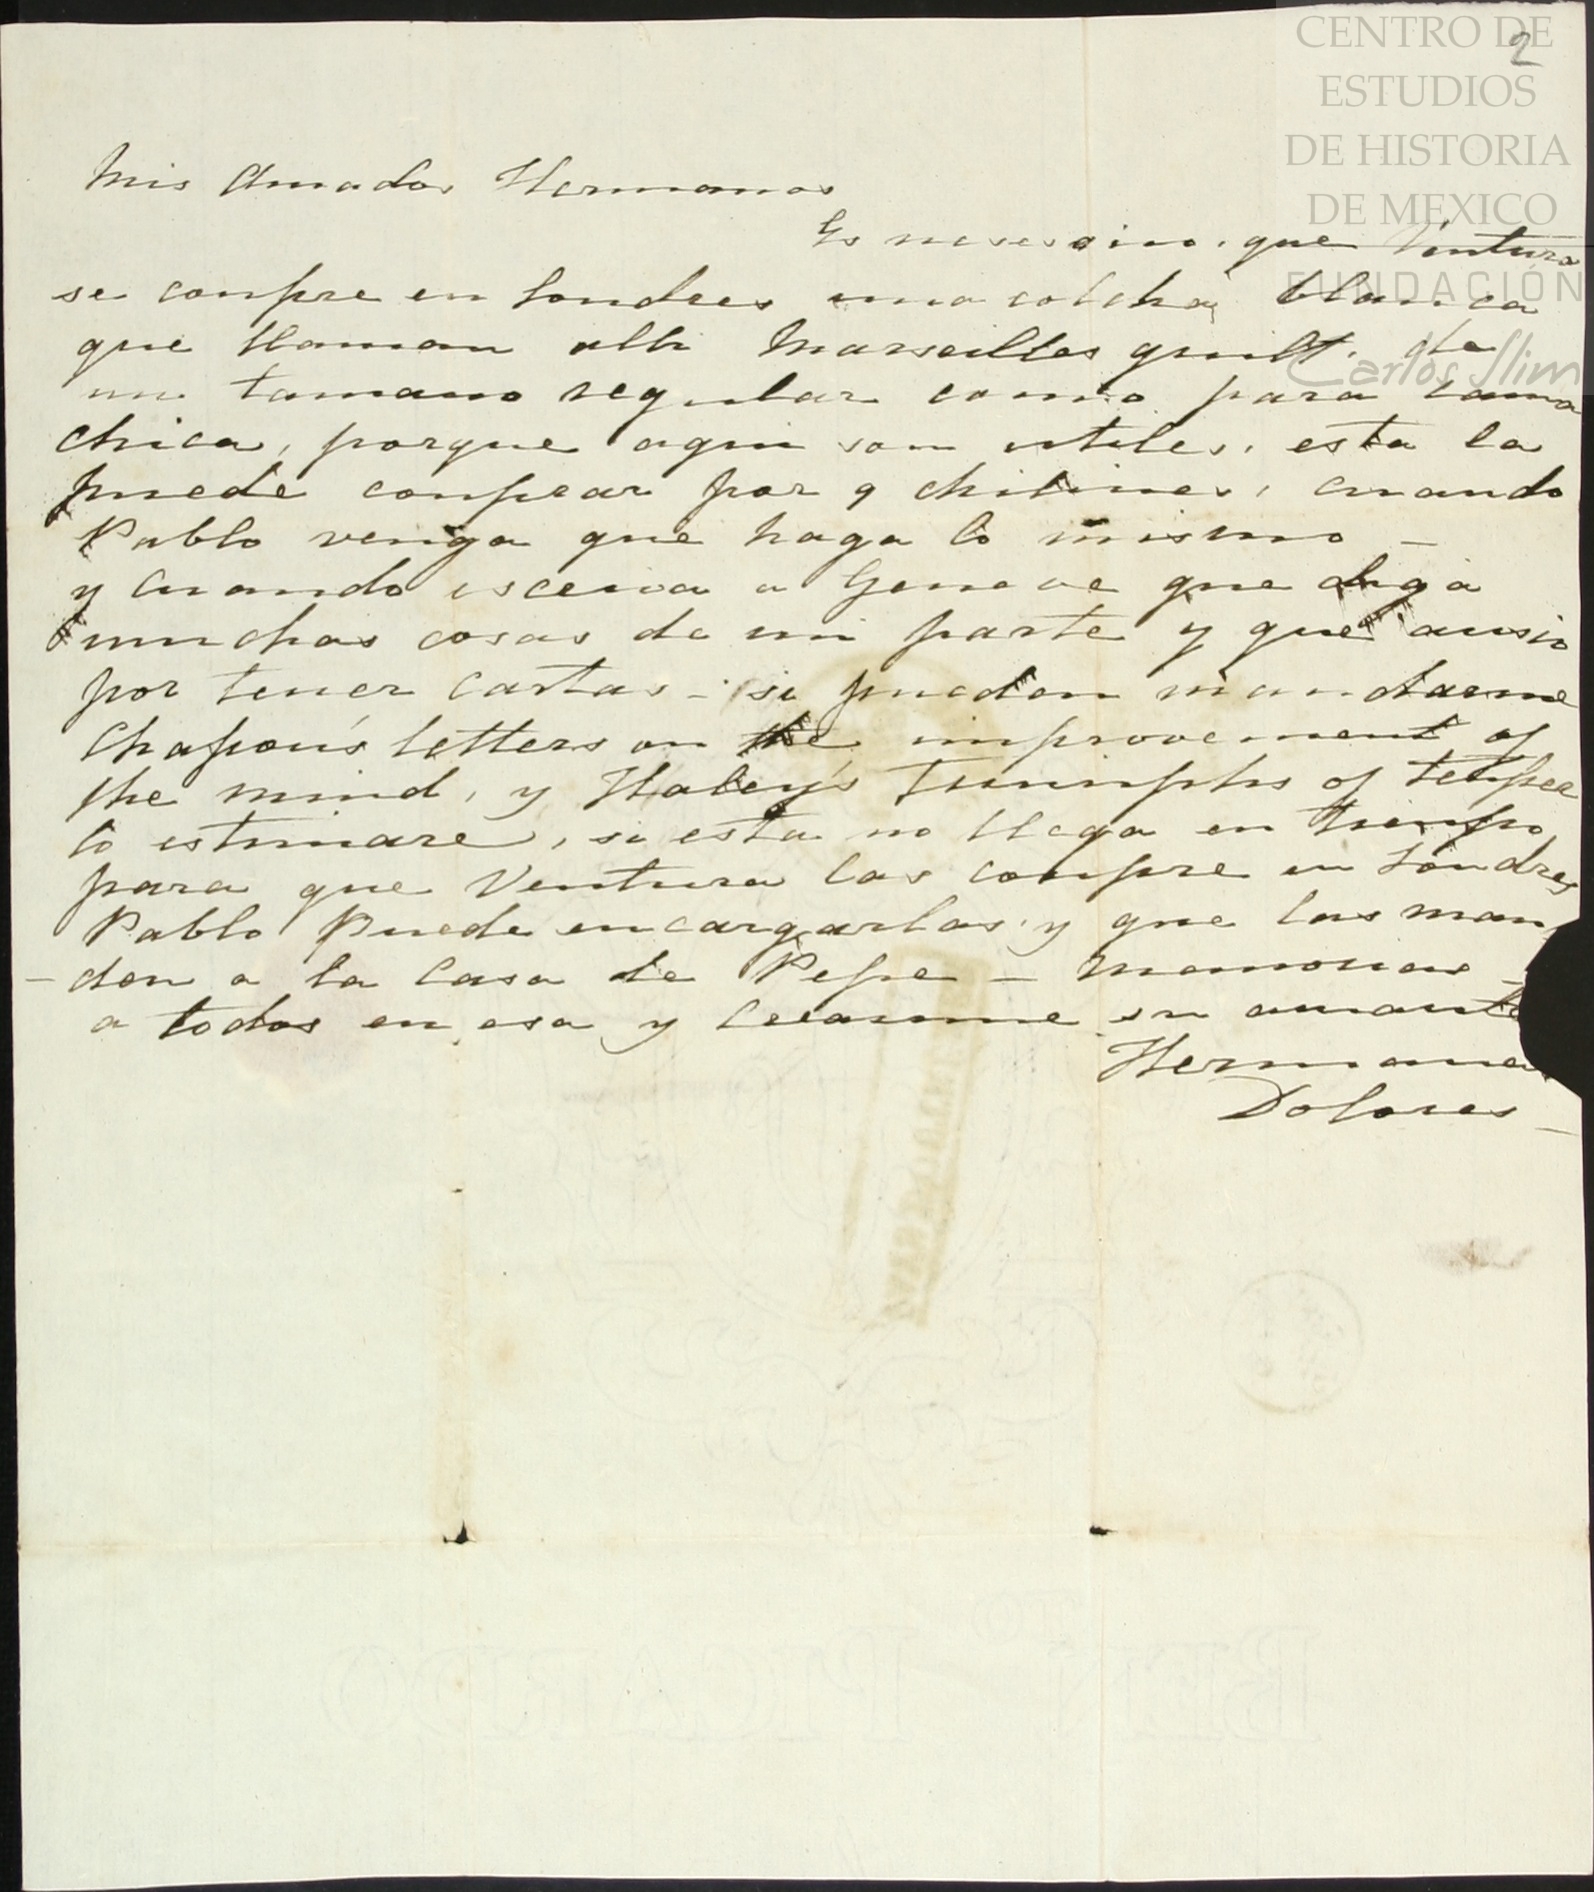 2
CENTRO DE
ESTUDIOS
DE HISTORIA
DE MEXICO
FUNDACIÓN
Carlos Slim
Mis Amados Hermanos
Es nesesario, que Ventura
se conpre en Londres una colcha blanca
que llaman alli Marseilles quilt. de
un tamano regular como para cama
chica, porque aqui son utiles, esta la
puede conprar por 9 chilines, cuando
Pablo venga que haga lo mismo —
y cuando escriva a Geneve que diga
munchas cosas de mi parte y que ansio
por tener cartas - si pueden mandarme
Chapon's letters on the improvement of
the mind, y Haley's Triunphs of temper
lo estimare, si esta no llega en tienpo
para que Ventura las conpre en Londres
Pablo Puede encargarlas y que las man
- den a la Casa de Pepe — memorias —
a todos en esa y creanme su amante
Hermana
Dolores —